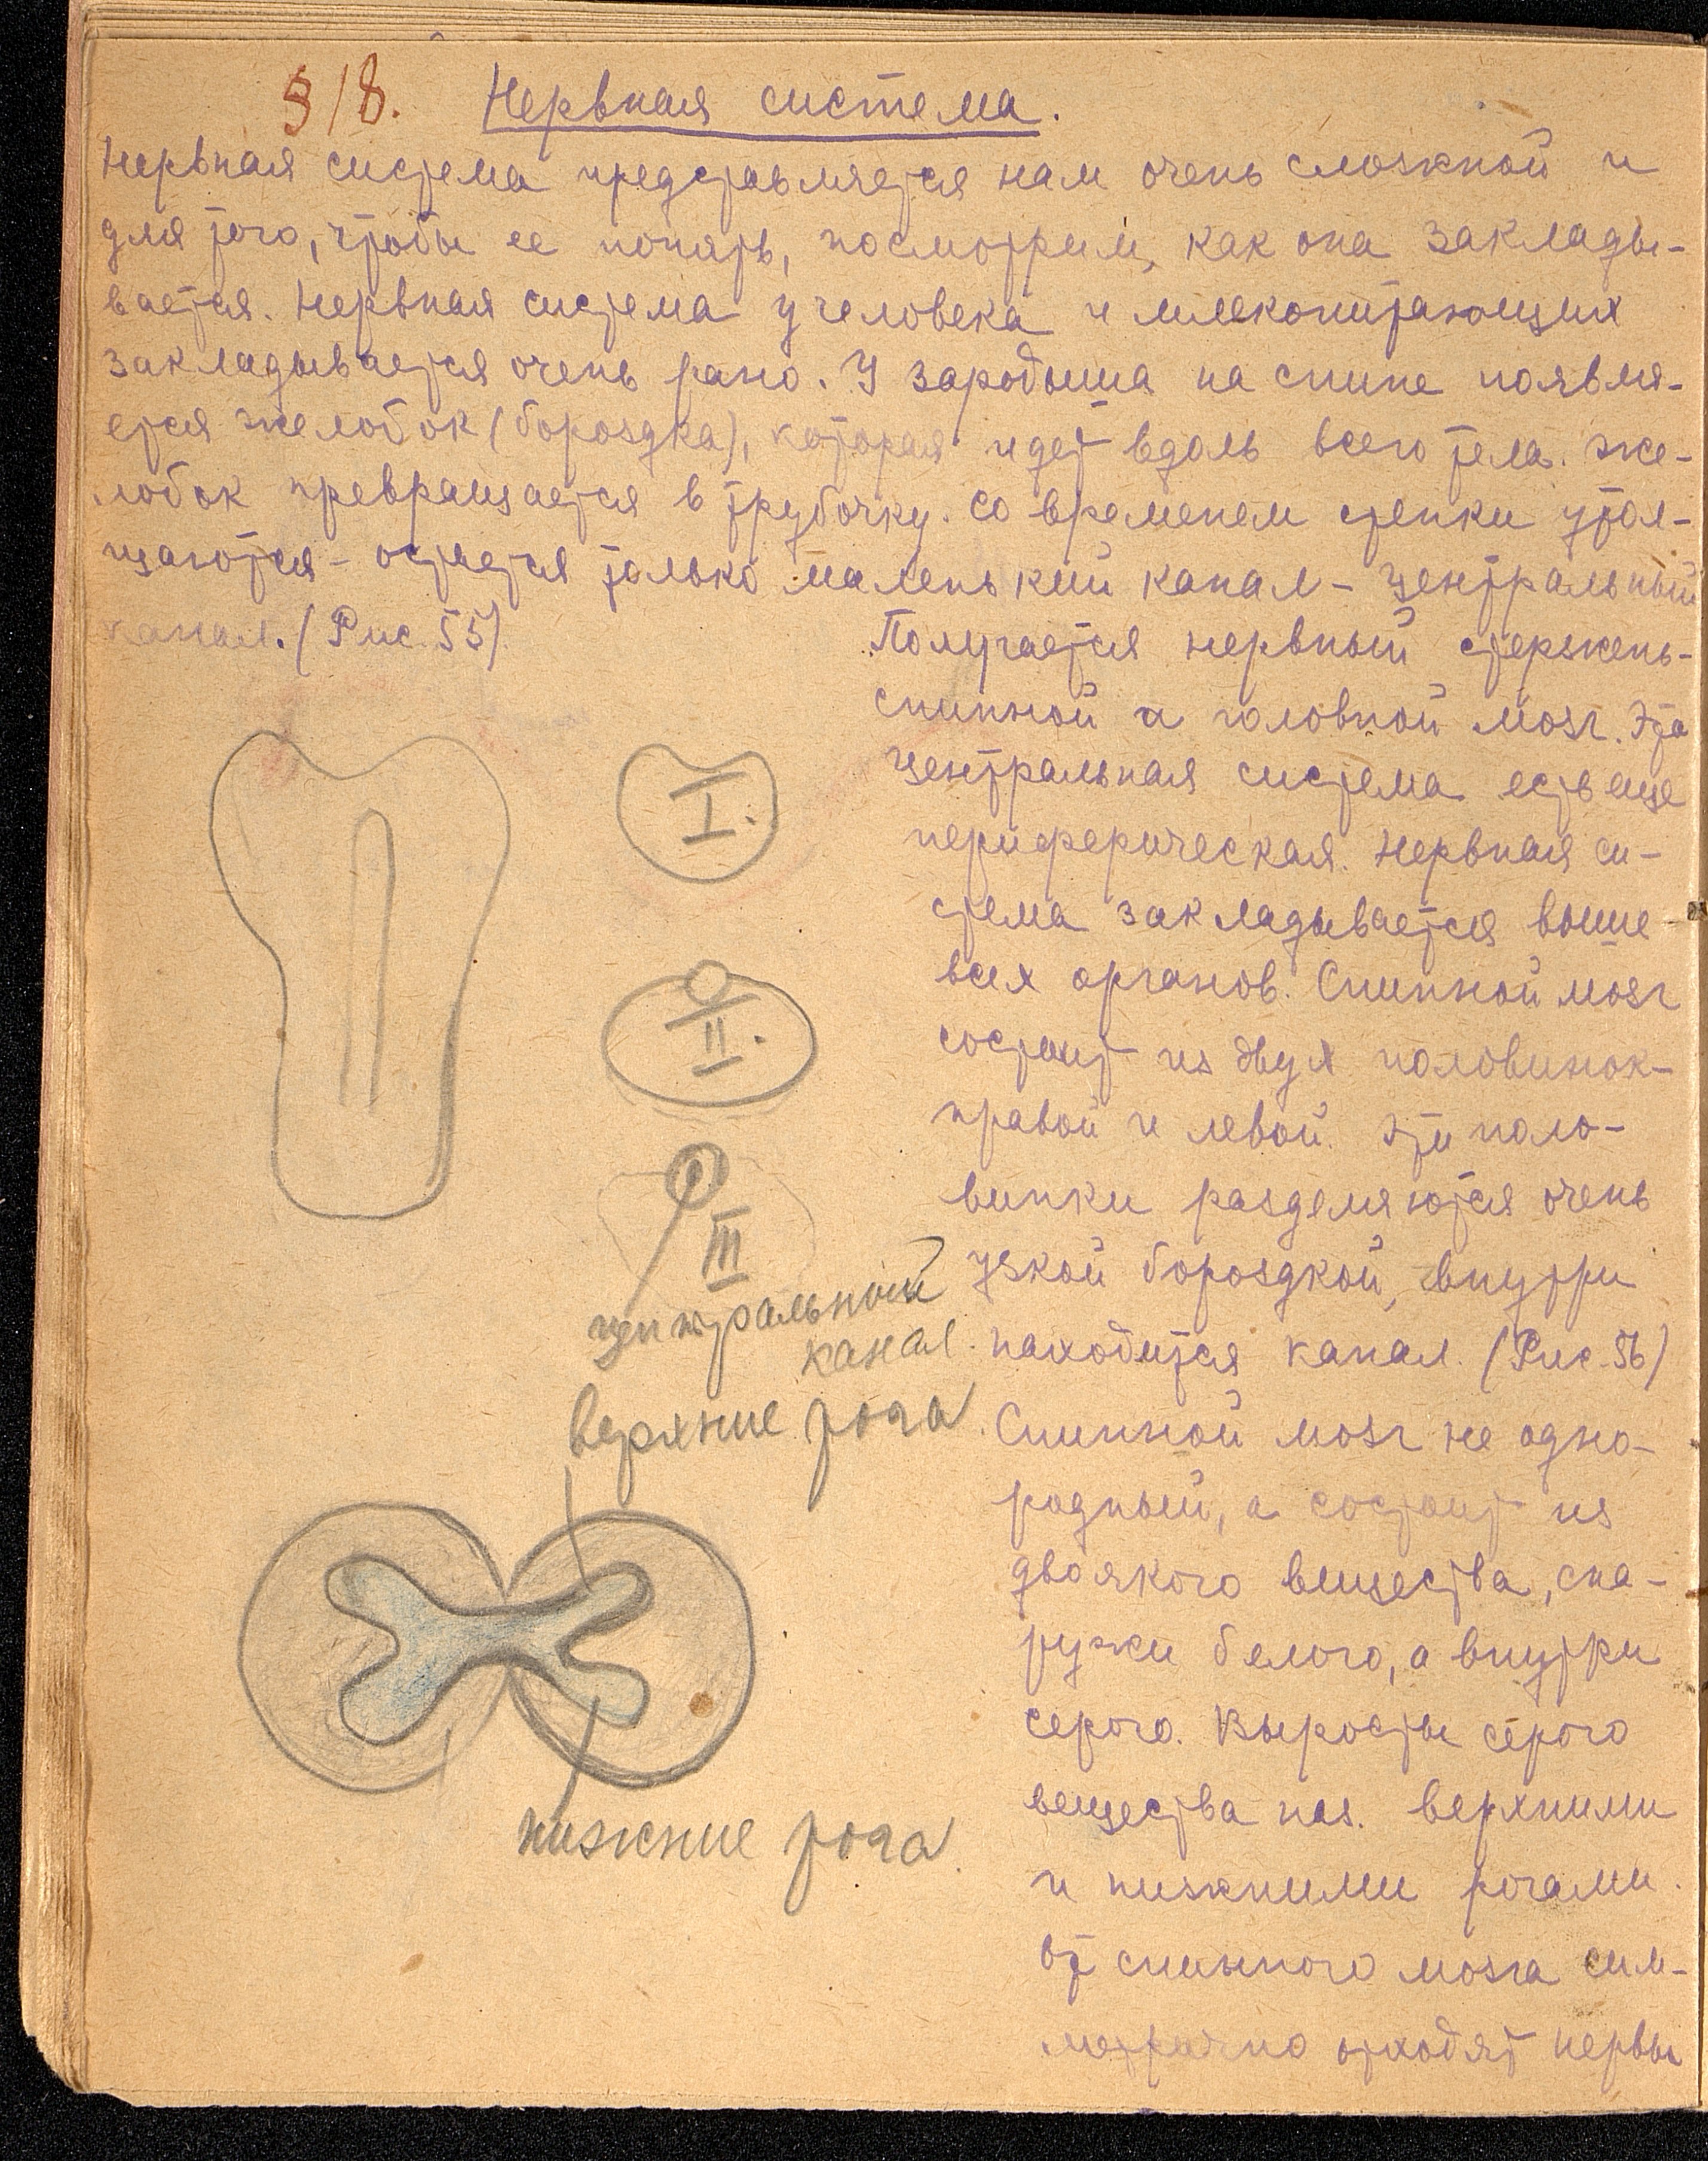 §18. Нервная система.
Нервная система представляется нам очень сложной и
для того, чтобы ее понять, посмотрим, как она заклады-
вается. Нервная система у человека и млекопитающих
закладывается очень рано. У зародыша на спине появля-
ется желобок (бороздка), которая идет вдоль всего тела. Же-
лобок превращается в трубочку. Со временем стенки утол-
щаются - остается только маленький канал - центральный
канал. (Рис. 55)
Получается нервный стержень-
спинной и головной мозг. Эта
центральная система есть еще
периферическая. Нервная си-
стема закладывается выше
всех органов. Спинной мозг
состоит из двух половинок-
правой и левой. Эти поло-
винки разделяются очень
узкой бороздкой, внутри
находится канал. (Рис. 56)
Спинной мозг не одно-
родный, а состоит из
двоякого вещества, сна-
ружи белого, а внутри
серого. Выросты серого
вещества наз. верхними
и нижними рогами.
От спинного мозга сим-
метрично отходят нервы
I.
II.
III
центральный
канал.
верхние рога.
нижние рога.